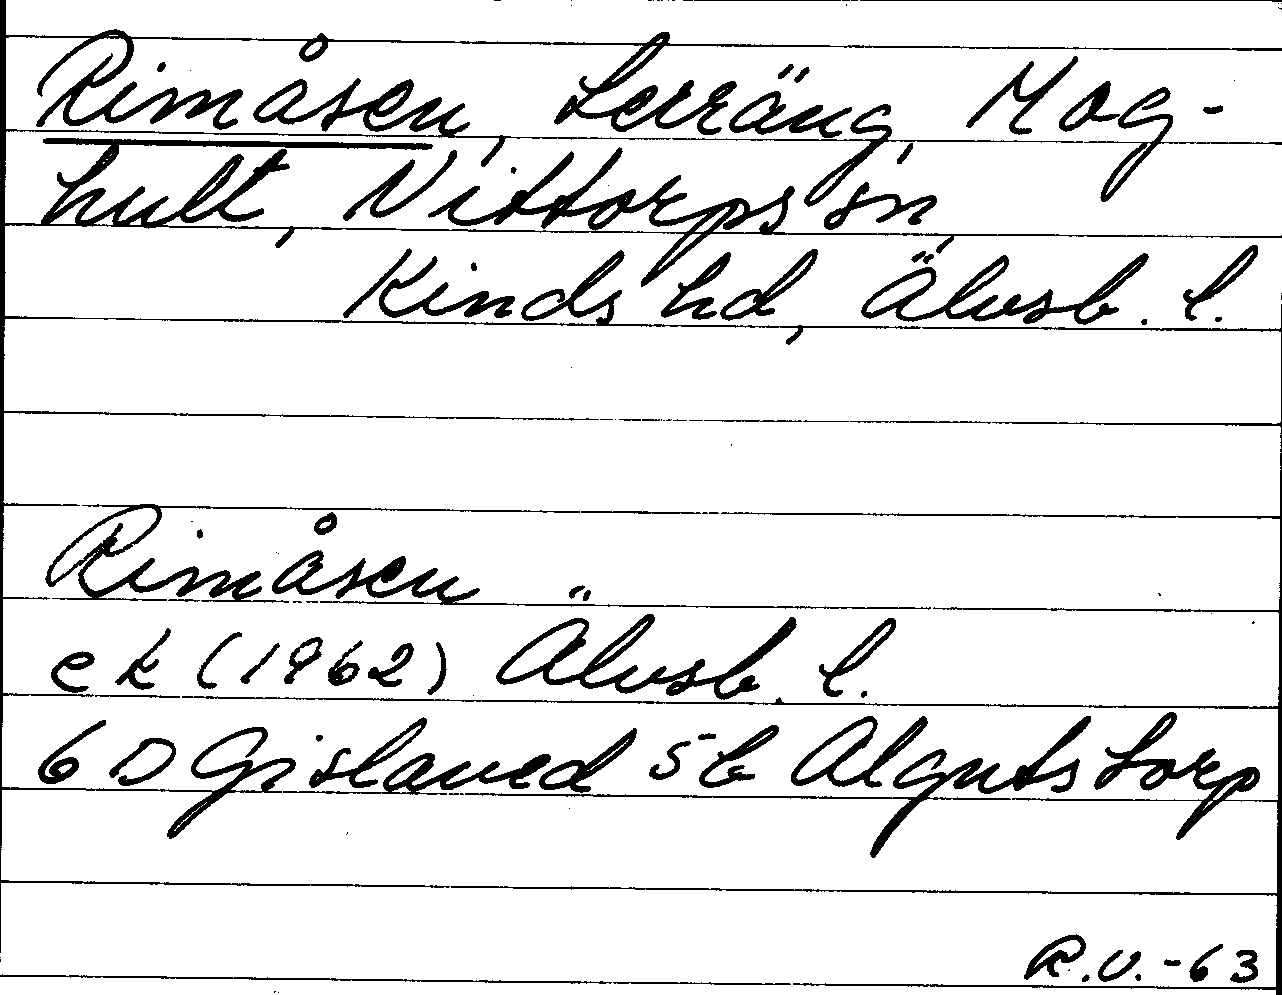 Rimåsen, terräng, Mog-
hult, Nittorps sn,
Kinds hd, Älvsb. l.
Rimåsen
ek (1962) Älvsb. l.
6 D Gislaved 5 b Algutstorp
R.V.-63